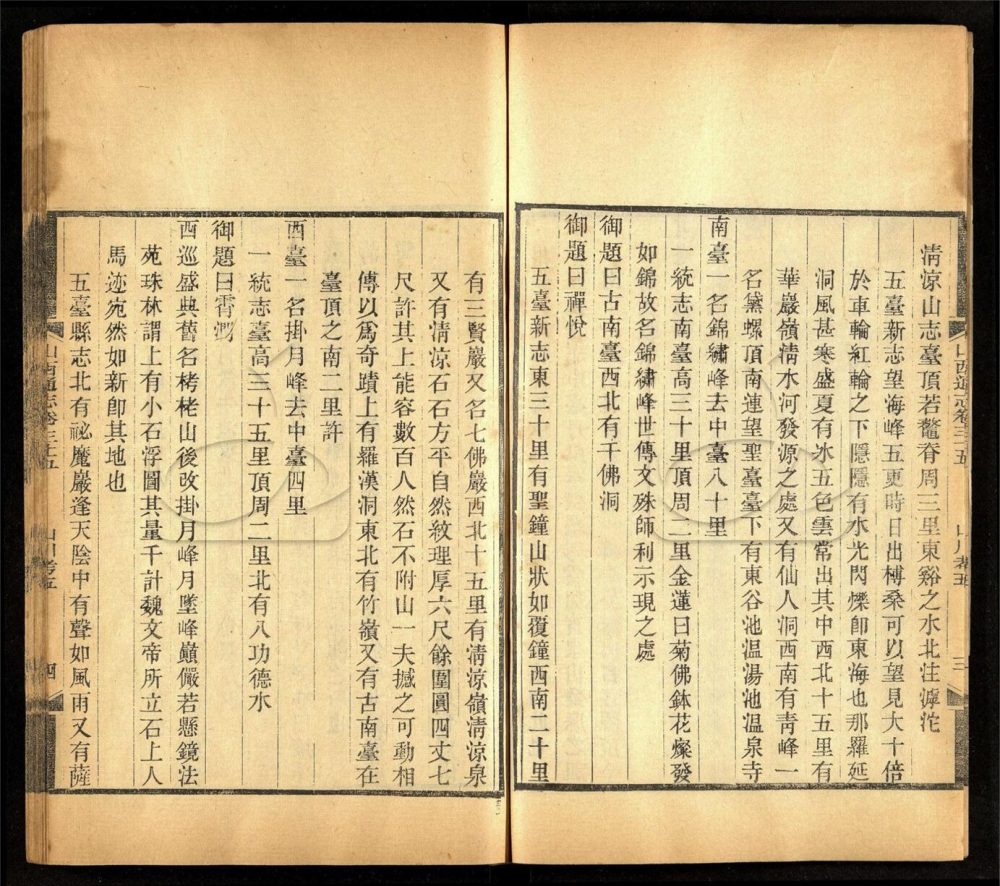 清涼山志臺頂若鼇脊周三里東谿之水北注滹沱
五臺新志望海峰五更時日出榑桑可以望見大十倍
於車輪紅輪之下隱隱有水光閃爍卽東海也那羅延
洞風甚寒盛夏有氷五色雲常出其中西北十五里有
華巖嶺淸水河發源之處又有仙人洞西南有靑峰一
名黛螺頂南連望聖臺臺下有東谷池溫湯池溫泉寺
南臺一名錦繡峰去中臺八十里
一統志南臺高三十里頂周二里金蓮日菊佛鉢花燦發
如錦故名錦繡峰世傳文殊師利示現之處
御題曰古南臺西北有千佛洞
御題曰禪悅
五臺新志東三十里有聖鐘山狀如覆鐘西南二十里
山西通志卷三十五
山川考五
三
有三賢巖又名七佛巖西北十五里有淸涼嶺淸涼泉
又有淸涼石石方平自然紋理厚六尺餘圍圓四丈七
尺許其上能容數百人然石不附山一夫撼之可動相
傳以爲奇蹟上有羅漢洞東北有竹嶺又有古南臺在
臺頂之南二里許
西臺一名掛月峰去中臺四里
一統志臺高三十五里頂周二里北有八功德水
御題曰霄
西巡盛典舊名栲栳山後改掛月峰月墜峰巔儼若懸鏡法
苑珠林謂上有小石浮圖其量千計魏文帝所立石上人
馬迹宛然如新卽其地也
五臺縣志北有祕魔巖逢天陰中有聲如風雨又有薩
山西通志卷三十五
山川考五
四